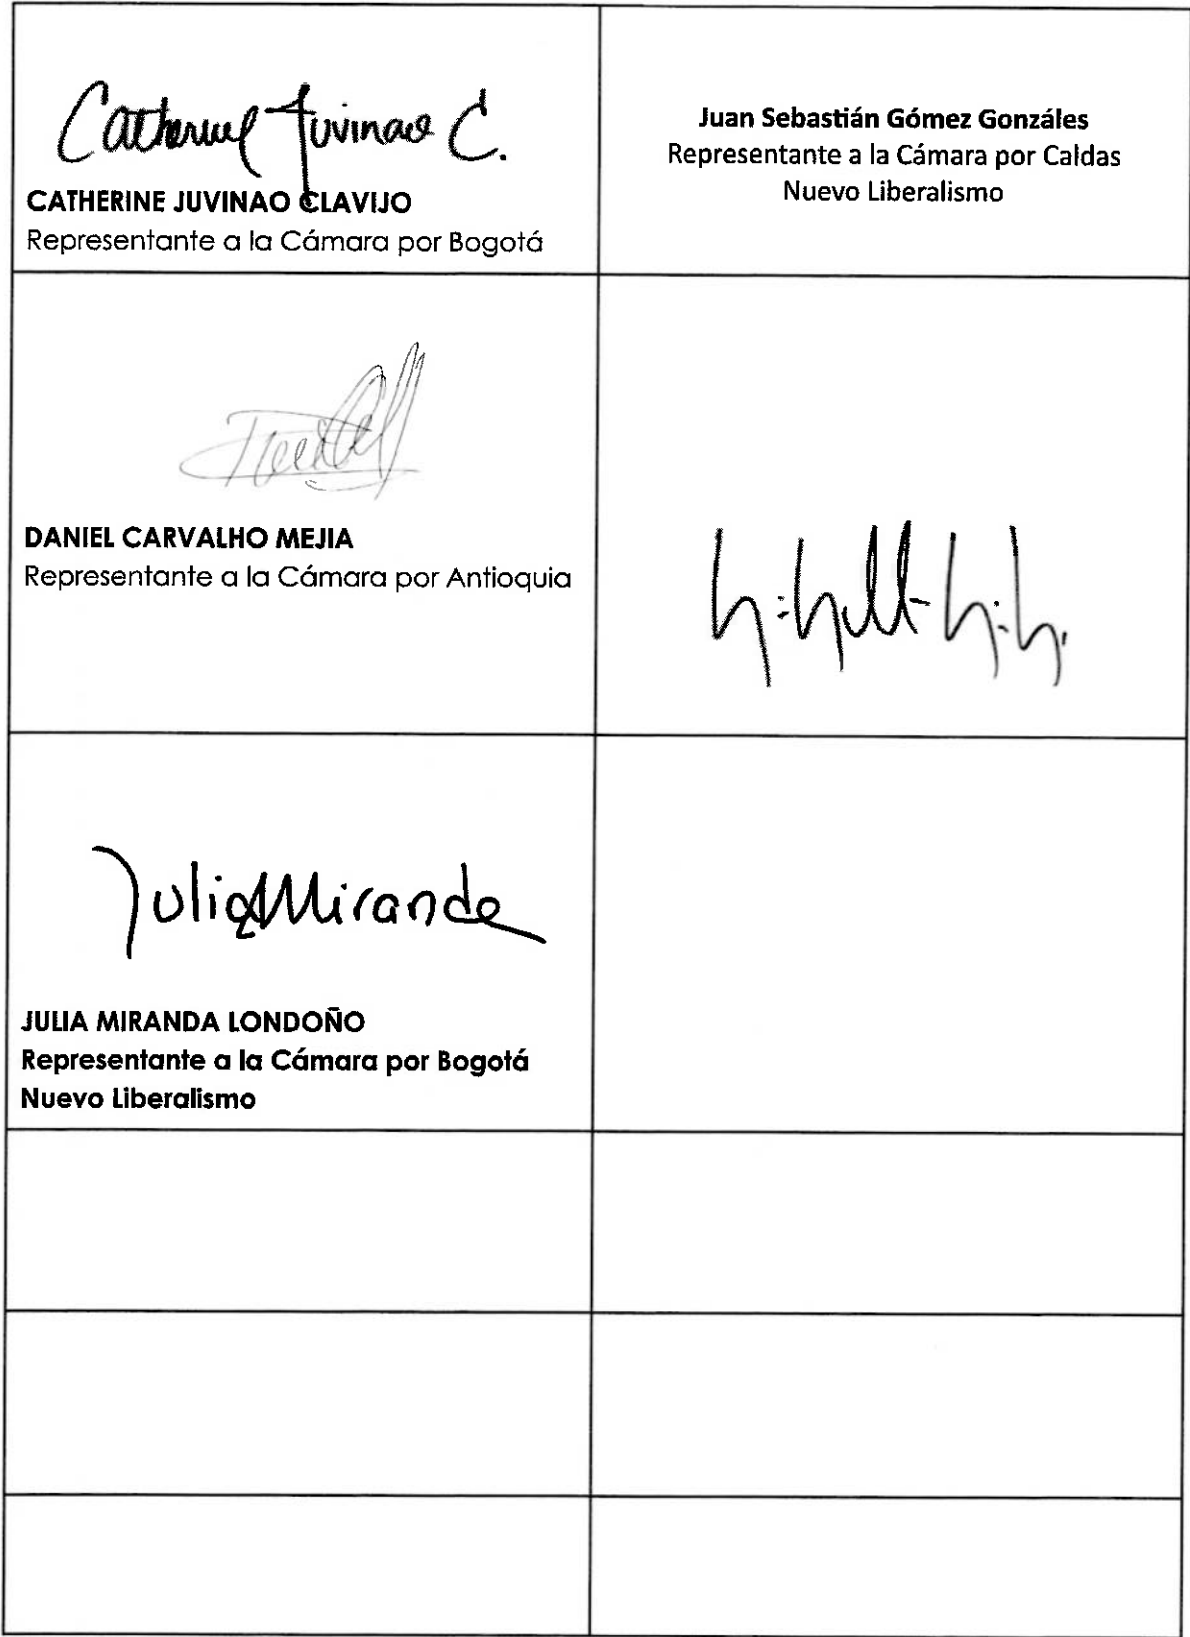 Catherine Juvinao C.
CATHERINE JUVINAO CLAVIJO
Representante a la Cámara por Bogotá
Juan Sebastián Gómez Gonzáles
Representante a la Cámara por Caldas
Nuevo Liberalismo
DANIEL CARVALHO MEJIA
Representante a la Cámara por Antioquia
Julia Miranda
JULIA MIRANDA LONDOÑO
Representante a la Cámara por Bogotá
Nuevo Liberalismo